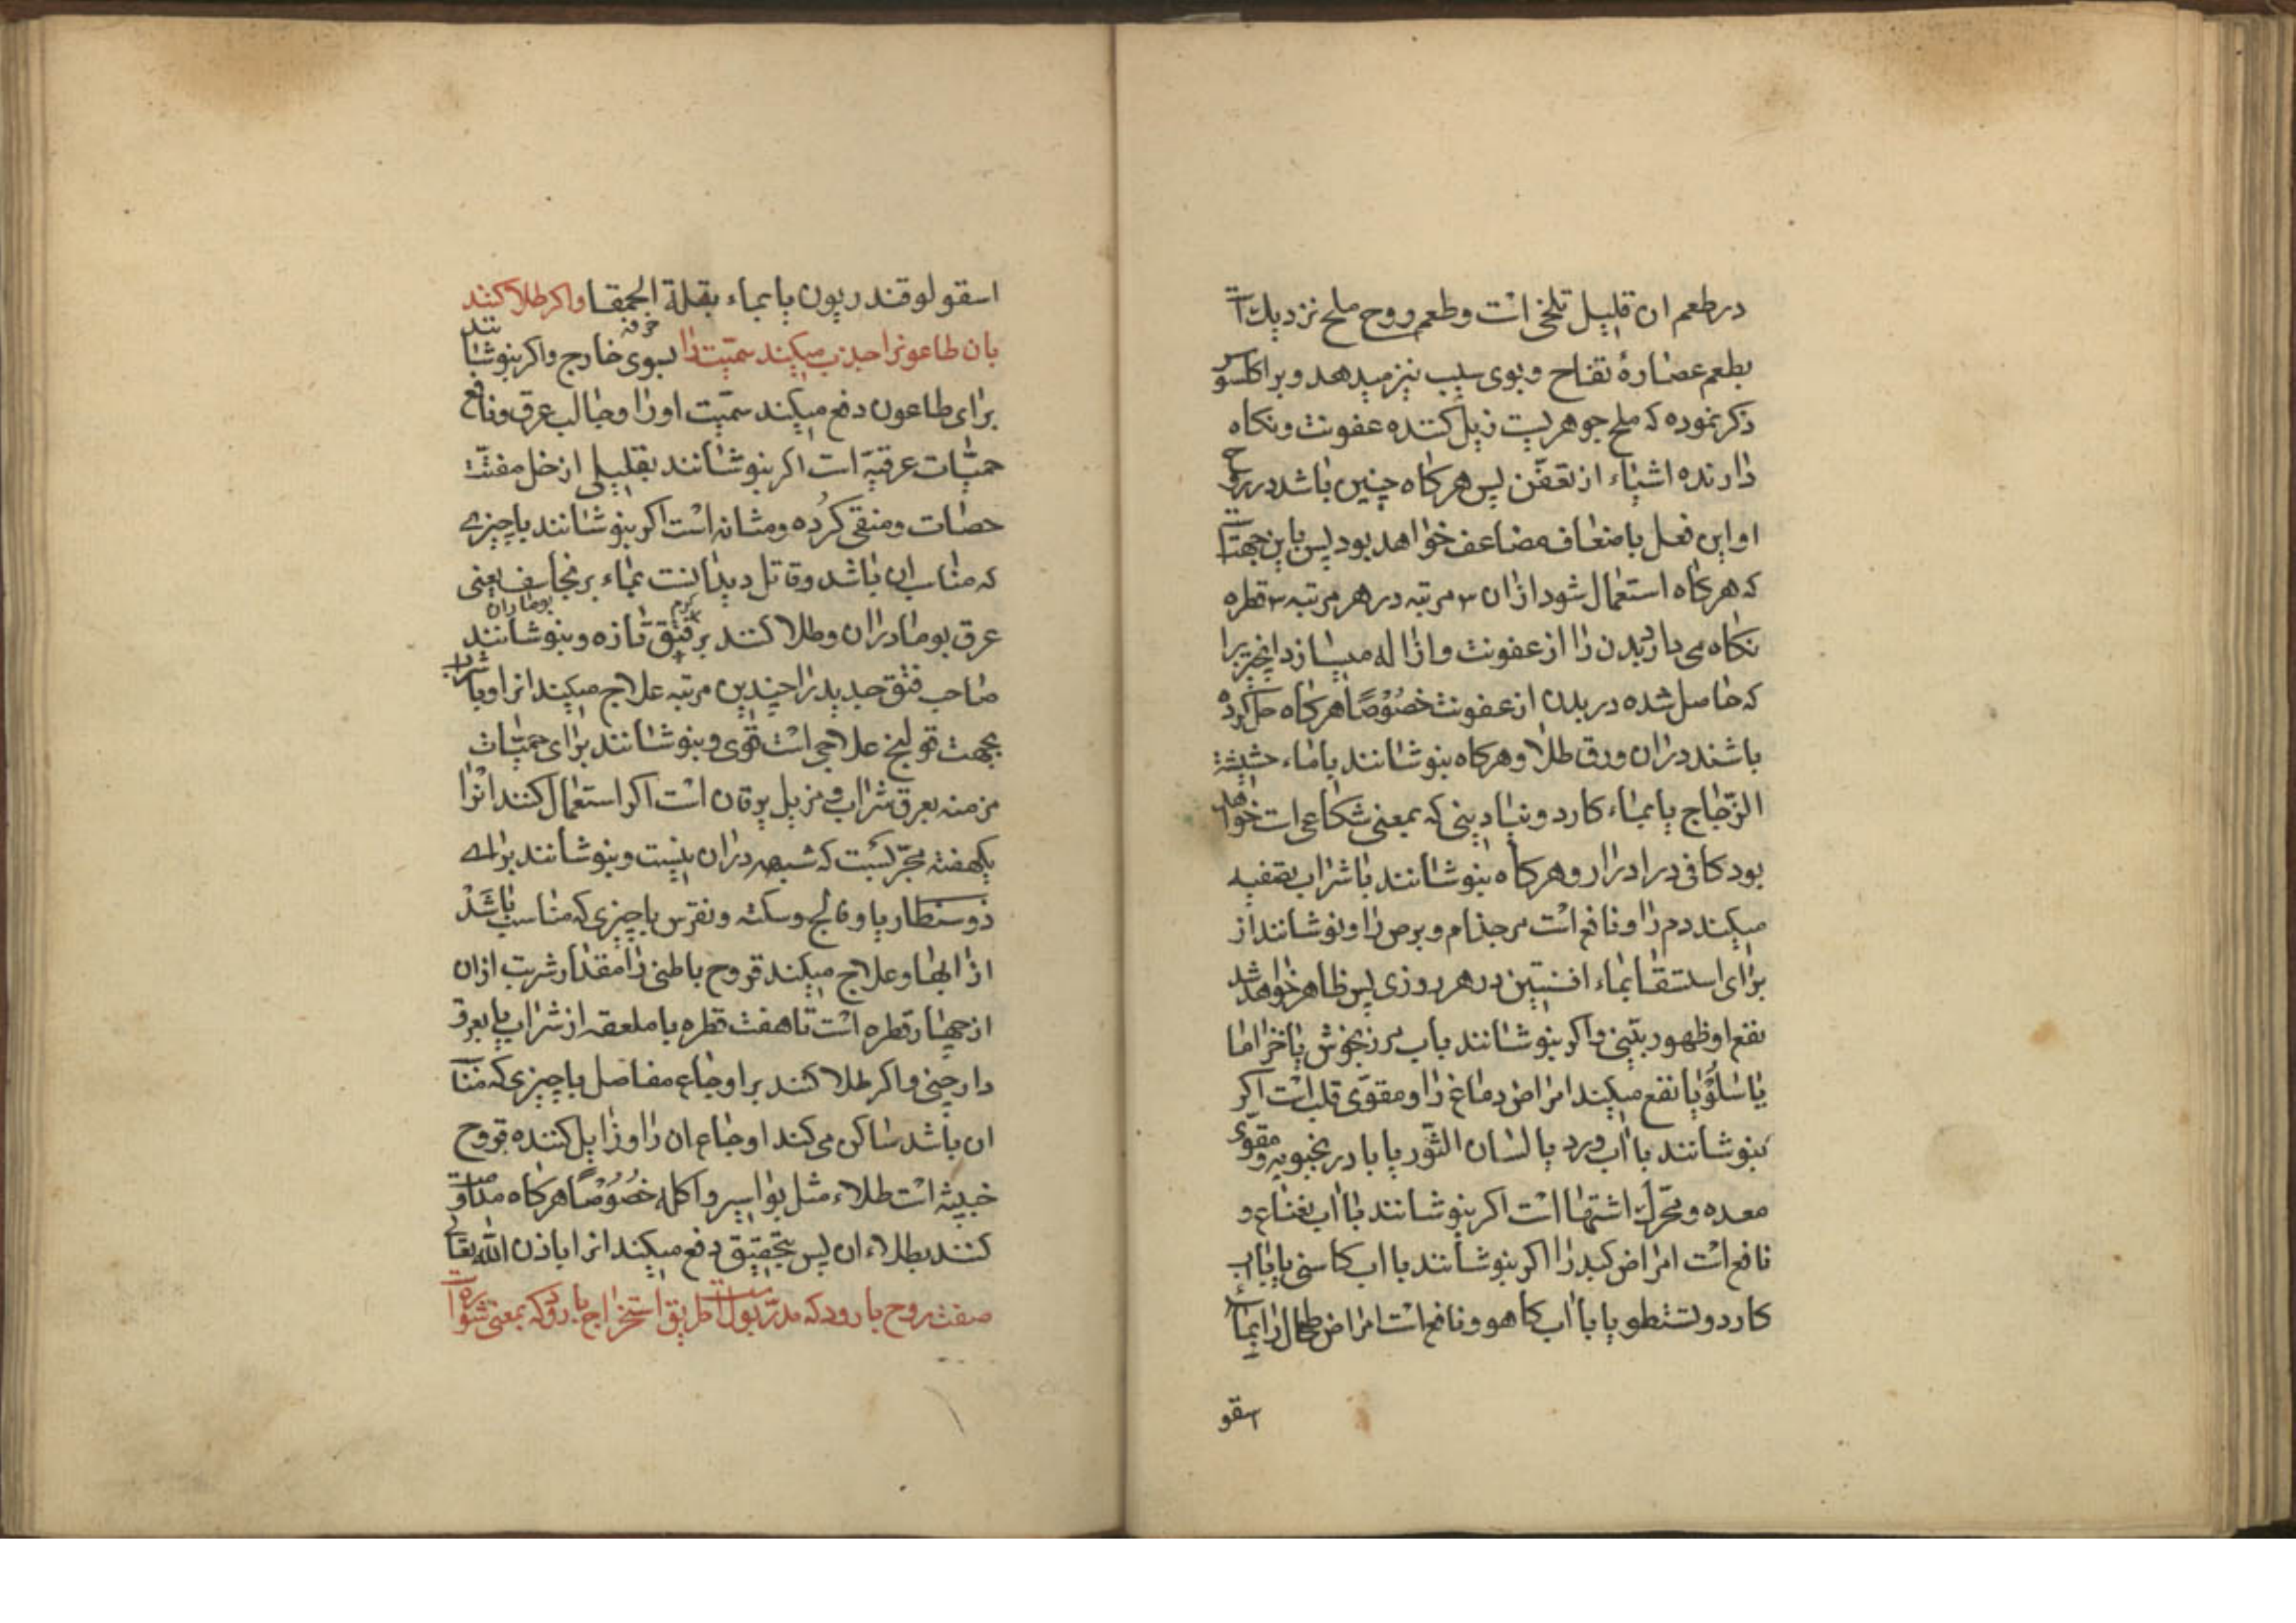 در طعم ان قلیل تلخی است و طعم روح ملح نزدیك است
بطعم عصارهٔ تفاح و بوی سیب نیز میدهد و براکلسوس
ذکر نموده که ملح جوهریست زیل کننده عفونت و نکاه
دارنده اشیاء از تعفّن پس هرکاه چنین باشد در روح
او این فعل باضعاف مضاعف خواهد بود پس باین جهت است
که هرکاه استعمال شود ازان ۳ مرتبه در هر مرتبه ۳ قطره
نکاه می دارد بدن را از عفونت و ازاله میسازد انچیزیرا
که حاصل شده در بدن از عفونت خصُوْصًا هرکاه حل کرده
باشند دران ورق طلا و هرکاه بنوشانند با ماء حشیشة
الزّجاج یا بماء کارد و نبادینی که بمعنی شکاعی است خواهد
بود کافی در ادرار و هرکاه بنوشانند با شراب تصفیه
میکند دم را و نافع است مر جذام و برص را و نوشانند از
برای استسقا بماء افسنتین در هر روزی پس ظاهر خواهد شد
نفع او ظهور بیّنی و اکر بنوشانند باب مرزنجوش یا خزاما
یا سَلْوْیا نفع میکند امراض دماغ را و مقوّی قلب است اکر
بنوشانند با اب ورد یا لسان الثّور یا بادرنجبویه و مقوّی
معده و محرّك اشتها است اکر بنوشانند با اب نعناع و
نافع است امراض کبد را اکر بنوشانند با اب کاسنی یا با اب
کاردولستطو یا با اب کاهو و نافع است امراض طحال را بماء
اسقو
اسقولوقندریون یا بماء بقلة الحمقا و اکر طلا کنند
خرفه
بان طاعونرا جذب میکند سمّیت را بسوی خارج و اکر بنوشانند
برای طاعون دفع میکند سمّیت او را و جالب عرق و نافع
حمیّات عرقیّه است اکر بنوشانند بقلیلی از خل مفتّت
حصات و منقی کرُده و مثانه است اکر بنوشانند با چیزی
که مناسب ان باشد و قاتل دیدانست بماء برنجاسف یعنی
بومادران
عرق بومادران و طلا کنند بر فتق تازه و بنوشانند
صاحب فتق جدید را چندین مرتبه علاج میکند انرا و با شراب
بجهت قولنج علاجی است قوی و بنوشانند برای حمیّات
مزمنه بعرق شراب و مزیل یرقان است اکر استعمال کنند انرا
یکهفته مجرّبست که شبهه دران نیست و بنوشانند برای
ذوسنطاریا و فالج و سکته و نقرس با چیزی که مناسب باشد
از ابها و علاج میکند قروح باطنی را مقدار شربت ازان
از چهار قطره است تا هفت قطره با ملعقه از شراب یا بعرق
دارچینی و اکر طلا کنند بر اوجاع مفاصل با چیزی که مناسب
ان باشد ساکن می کند اوجاع ان را و زایل کننده قروح
خبیثه است طلاء مثل بواسیر و اکله خصُوْصًا هرکاه مداومت
کنند بطلاء ان پس بتحقیق دفع میکند انرا باذن الله تعالی
صفت روح بارود که مدرّ بول است طریق استخراج بارود که بمعنی شوره است